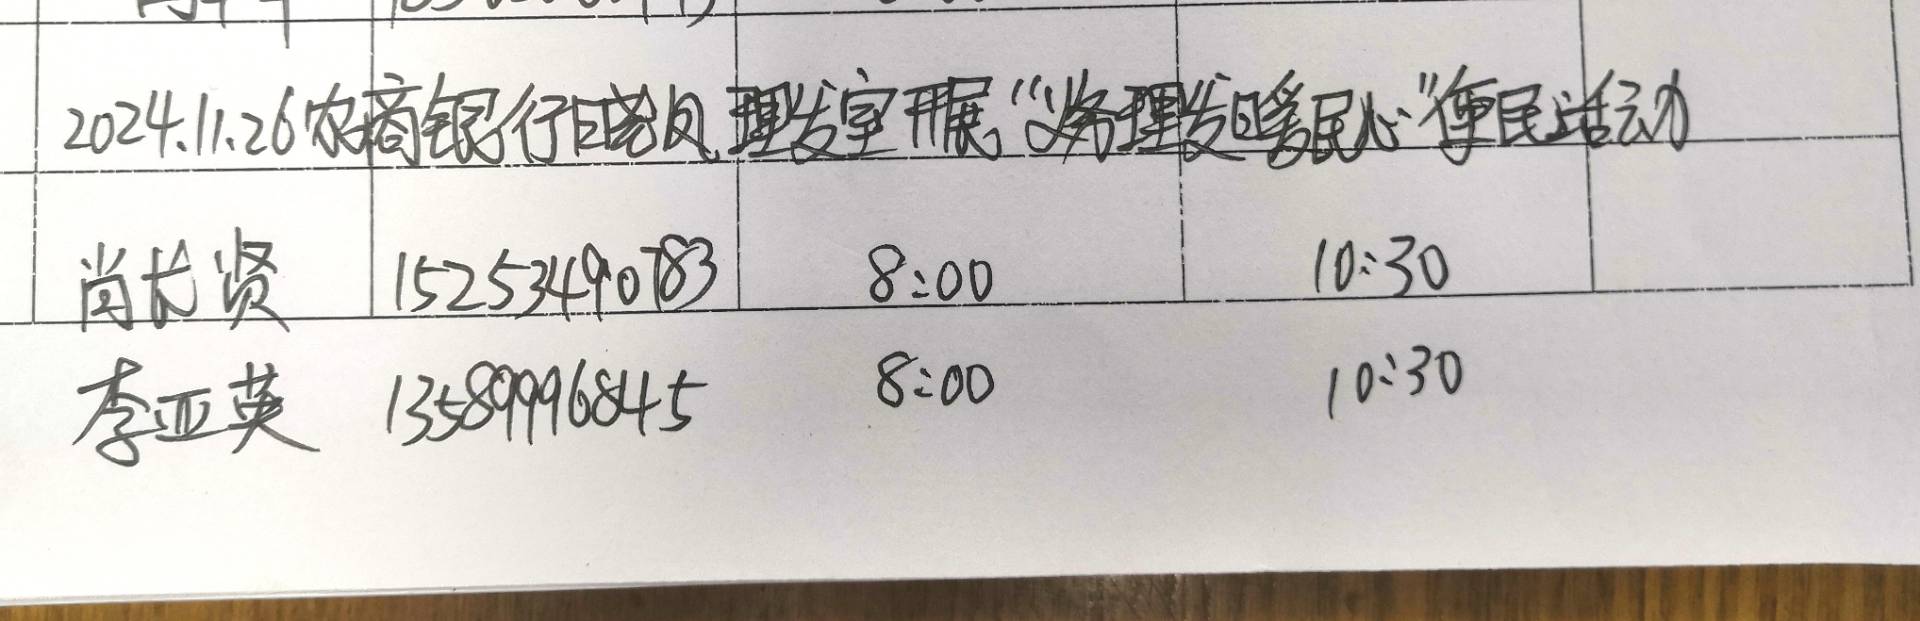 2024.11.26农商银行日 理发室开展“义务理发暖民心”便民活动
肖长贤 15253490783 8:00 10:30
李亚英 13589996845 8:00 10:30